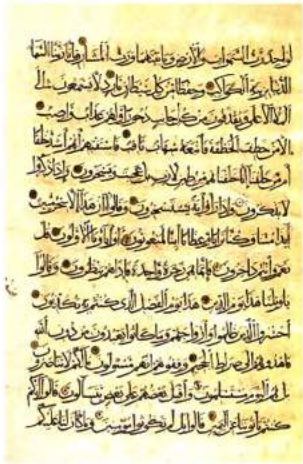 لواحد رب السموات والارض وما بينهما ورب المشارق انا زينا السما
الدنيا بزينة الكواكب وحفظا من كل شيطان مارد لا يسمعون الى
الملا الاعلى ويقذفون من كل جانب دحورا ولهم عذاب واصب
الا من خطف الخطفة فاتبعه شهاب ثاقب فاستفتهم اهم اشد خلقا
ام من خلقنا انا خلقناهم من طين لازب بل عجبت ويسخرون واذا ذكروا
لا يذكرون واذا راوا اية يستسخرون وقالوا ان هذا الا سحر مبين
ائذا متنا وكنا ترابا وعظاما ائنا لمبعوثون او اباونا الاولون قل
نعم وانتم داخرون فانما هي زجرة واحدة فاذا هم ينظرون وقالوا
يا ويلنا هذا يوم الدين هذا يوم الفصل الذي كنتم به تكذبون
احشروا الذين ظلموا وازواجهم وما كانوا يعبدون من دون الله
فاهدوهم الى صراط الجحيم وقفوهم انهم مسئولون ما لكم لا تناصرون
بل هم اليوم مستسلمون واقبل بعضهم على بعض يتسالون قالوا انكم
كنتم تاتوننا عن اليمين قالوا بل لم تكونوا مومنين وما كان لنا عليكم